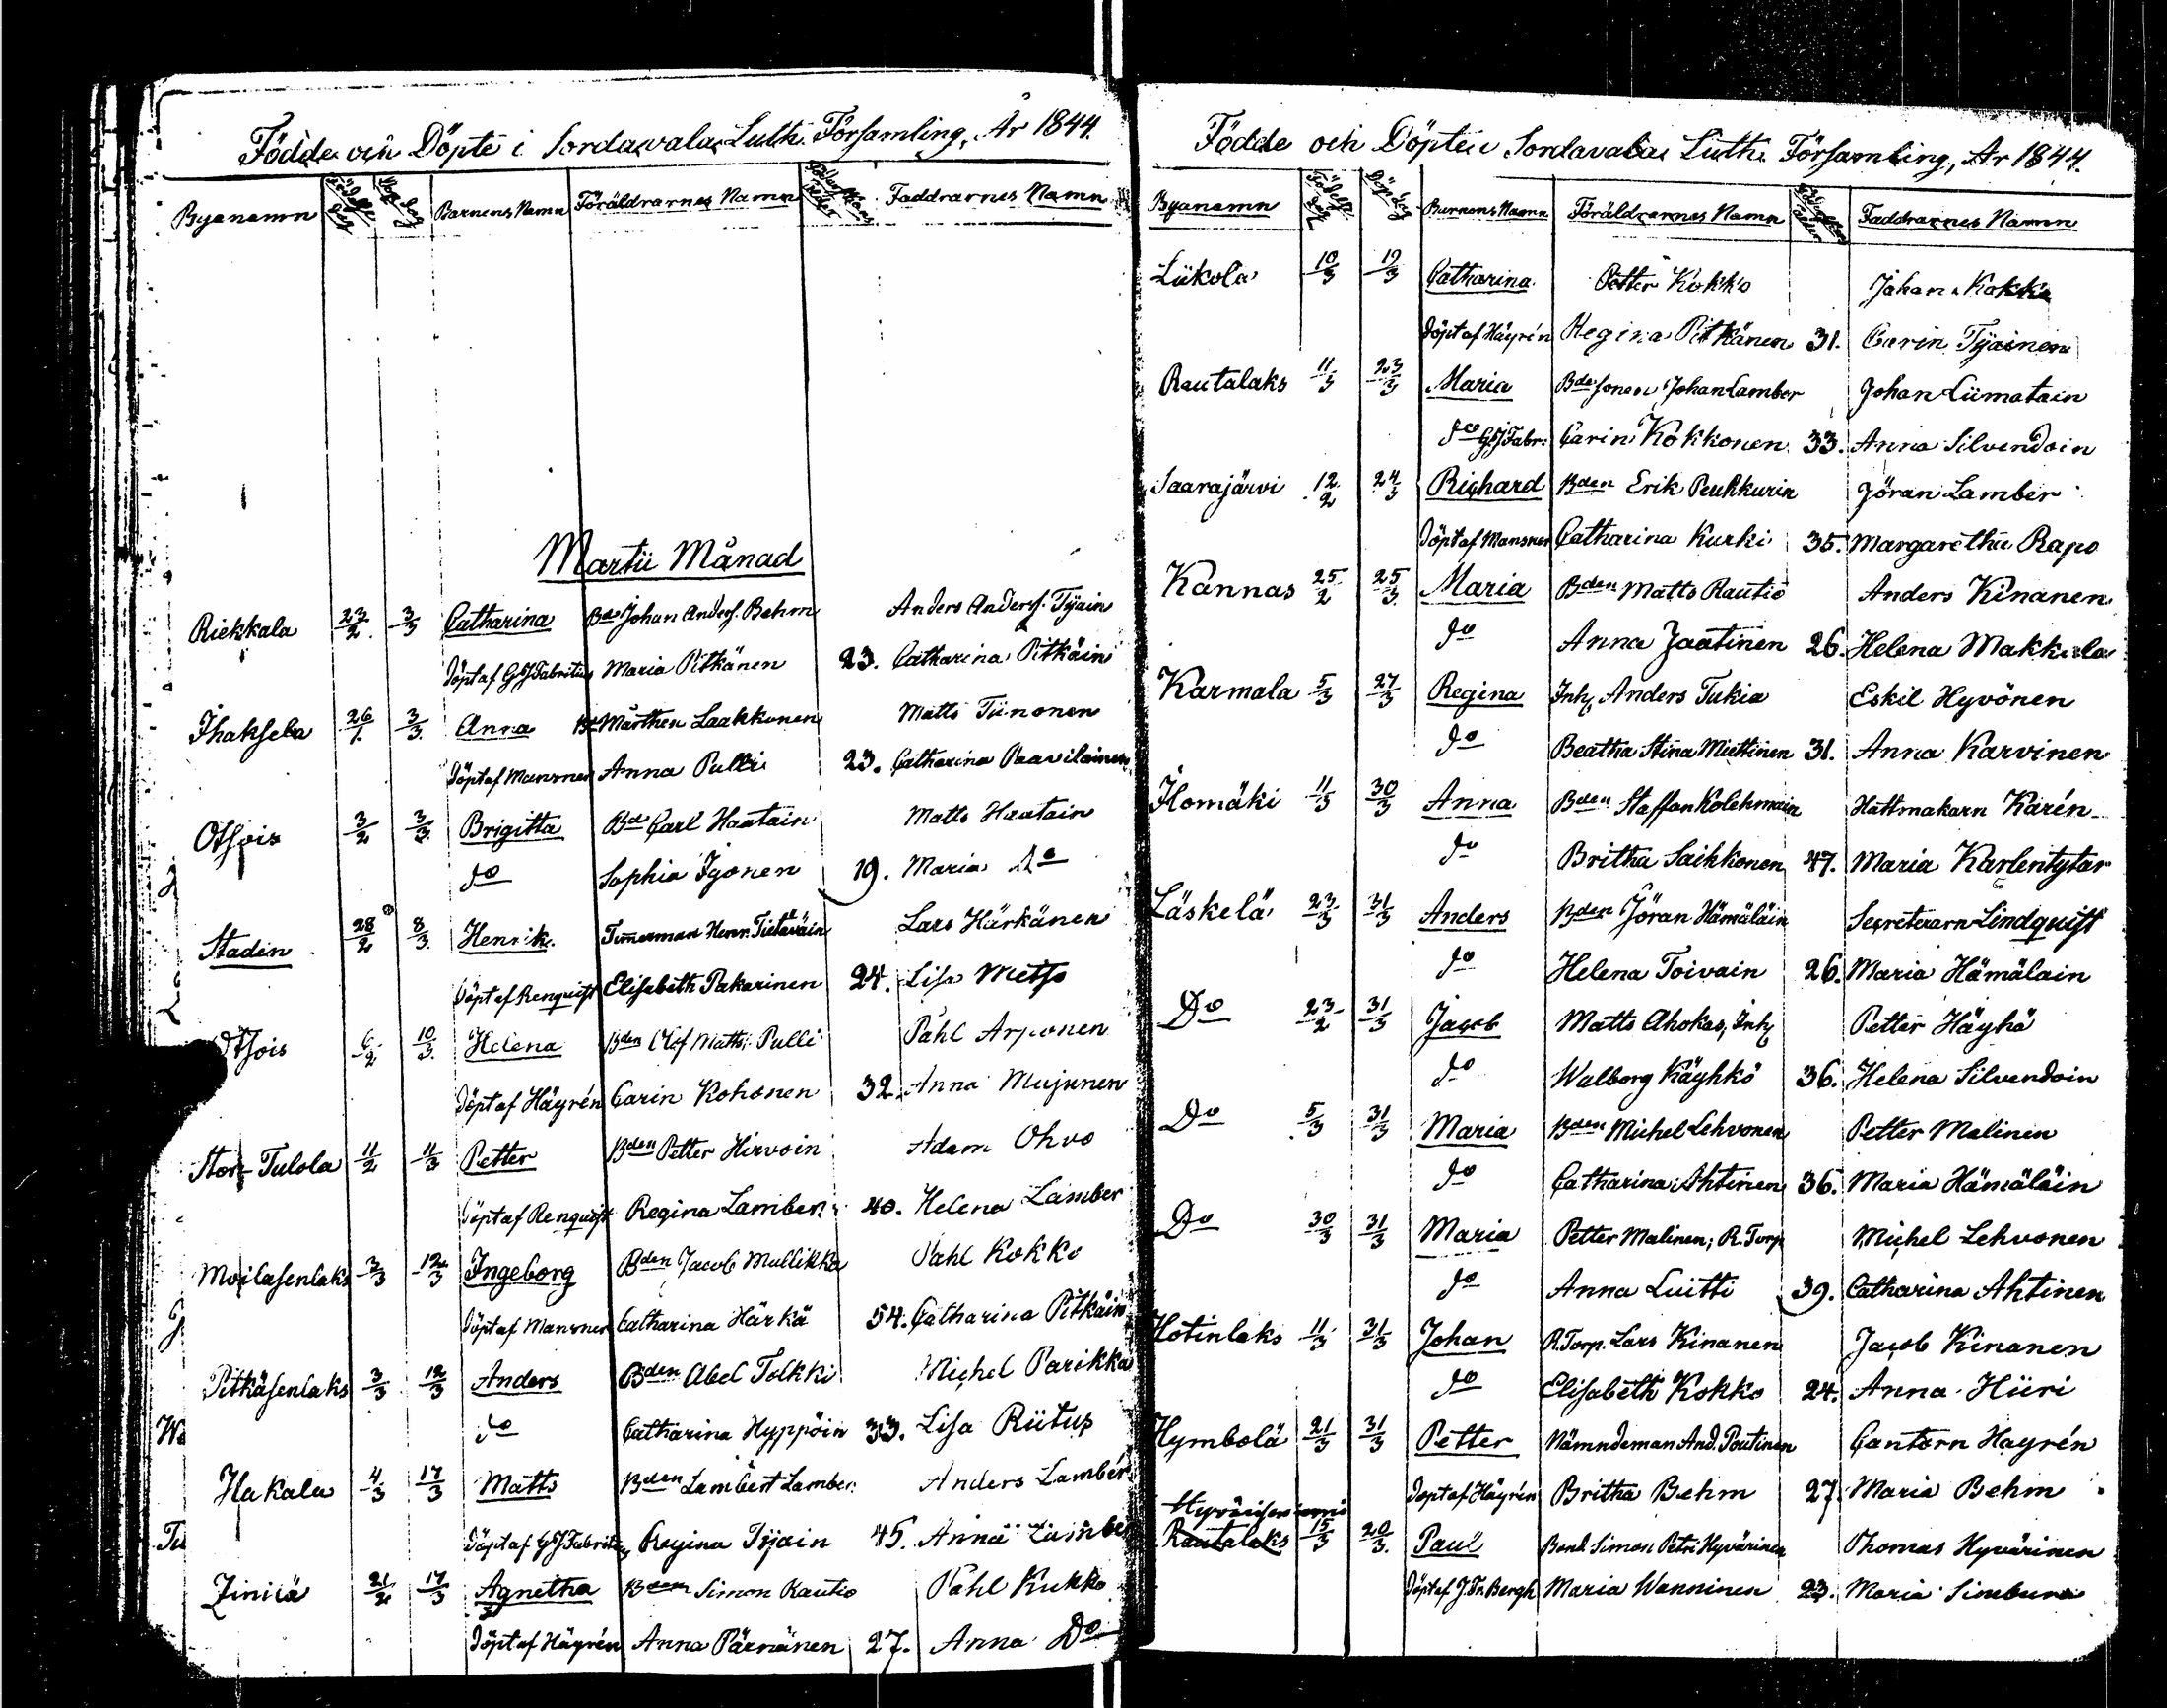 Födde och Döpte i Sordawala Luth. Församling, År 1844.
Byanamn Födelsedag Döpdag Barnens Namn Föräldrarnes Namn Faddrarnes Namn
Martii Månad
Riekkala 23/2 3/3 Catharina Bde Johan Anderss. Behm Anders Anderss. Tyäin
Döpt af GJ Fabritius Maria Pitkänen 23. Catharina Pitkäin
Ihaksela 26/1. 3/3. Anna Bd Mårthen Laakkonen Matts Tiinonen
Döpt af Mansner Anna Pulli 23. Catharina Paavilainen
Otsois 3/2 3/3. Brigitta Bd Carl Haatain Matts Haatain
do Sophia Igonen 19. Maria Do
Staden 28/2 8/3. Henrik Timerman Henr. Tietäväin Lars Härkänen
Döpt af Renquist Elisabeth Pakarinen 24. Lisa Metso
Otsois 6/2 10/3. Helena Bden Olof Matts. Pulli Påhl Arponen
Döpt af Häyrén Carin Kohonen 32. Anna Mujunen
Stor Tulola 11/2 11/3 Petter Bden Petter Hirvoin Adam Ohvo
Döpt af Renquist Regina Lamber 40. Helena Lamber
Moilasenlaks 3/3 12/3 Ingeborg Bden Jacob Mullikka Påhl Kokko
Döpt af Mansner Catharina Härkä 54. Catharina Pitkäin
Pitkäsenlaks 3/3 12/3 Anders Bden Abel Tolkki Michel Parikka
do Catharina Hyppöin 33. Lisa Riitus
Hakala 4/3 17/3 Matts Bden Lambert Lamber Anders Lamber
Döpt af GJ Fabritius Regina Tyäin 45. Anna Lamber
21/2 17/3 Agnetha Bden Simon Rautio Påhl Kukko
Döpt af Häyrén Anna Pärnänen 27. Anna Do
Födde och Döpte i Sordavala Luth. Församling, År 1844.
Byanamn Födelsedag Döpdag Barnens Namn Föräldrarnes Namn Faddrarnes Namn
Liikola 10/3 19/3 Catharina Petter Kokko Johan Kokko
Döpt af Häyrén Regina Pitkänen 31. Carin Tyäinen
Rautalaks 11/3 23/3 Maria Johan Lamber Johan Liimatain
do GJ Fabr. Carin Kokkonen 33. Anna Silvendoin
Saarajärvi 12/2 24/3 Richard Bden Erik Peuhkurin Göran Lamber
Döpt af Mansner Catharina Kurki 35. Margaretha Rapo
Kannas 25/2 25/3. Maria Bden Matts Rautio Anders Kinanen
do Anna Jaatinen 26. Helena Makkola
Karmala 5/3 27/3 Regina Inh. Anders Tukia Eskil Hyvönen
do Beatha Stina Miettinen 31. Anna Karvinen
Ilomäki 11/3 30/3 Anna Bden Staffan Kolehmain Hattmakarn Karén
do Britha Saikkonen 47. Maria Karlentytar
Läskelä 23/3 31/3 Anders Bden Jöran Hämäläin Secreterarn Lindquist
do Helena Toivain 26. Maria Hämäläin
Do 23/2 31/3 Jacob Matts Ahokas, Inh. Petter Häyhä
do Walborg Käyhkö 36. Helena Silvendoin
Do 5/3 31/3 Maria Bden Michel Lehvonen Petter Malinen
do Catharina Ahtinen 36. Maria Hämäläin
Do 30/3 31/3 Maria Petter Malinen, R. Torp Michel Lehvonen
do Anna Luitti 39. Catharina Ahtinen
Hotinlaks 11/3 31/3 Johan R. Torp. Lars Kinanen Jacob Kinanen
do Elisabeth Kokko 24. Anna Hiiri
Hymbolä 21/3 31/3 Petter Nämndeman And. Poutinen Cantorn Hayrén
Döpt af Häyrén Britha Behm 27. Maria Behm
Rautalaks 15/3 20/3. Paul Bond. Simon Petri Hyvärinen Thomas Hyvärinen
Döpt af J. Fr. Bergh Maria Wanninen 23. Maria